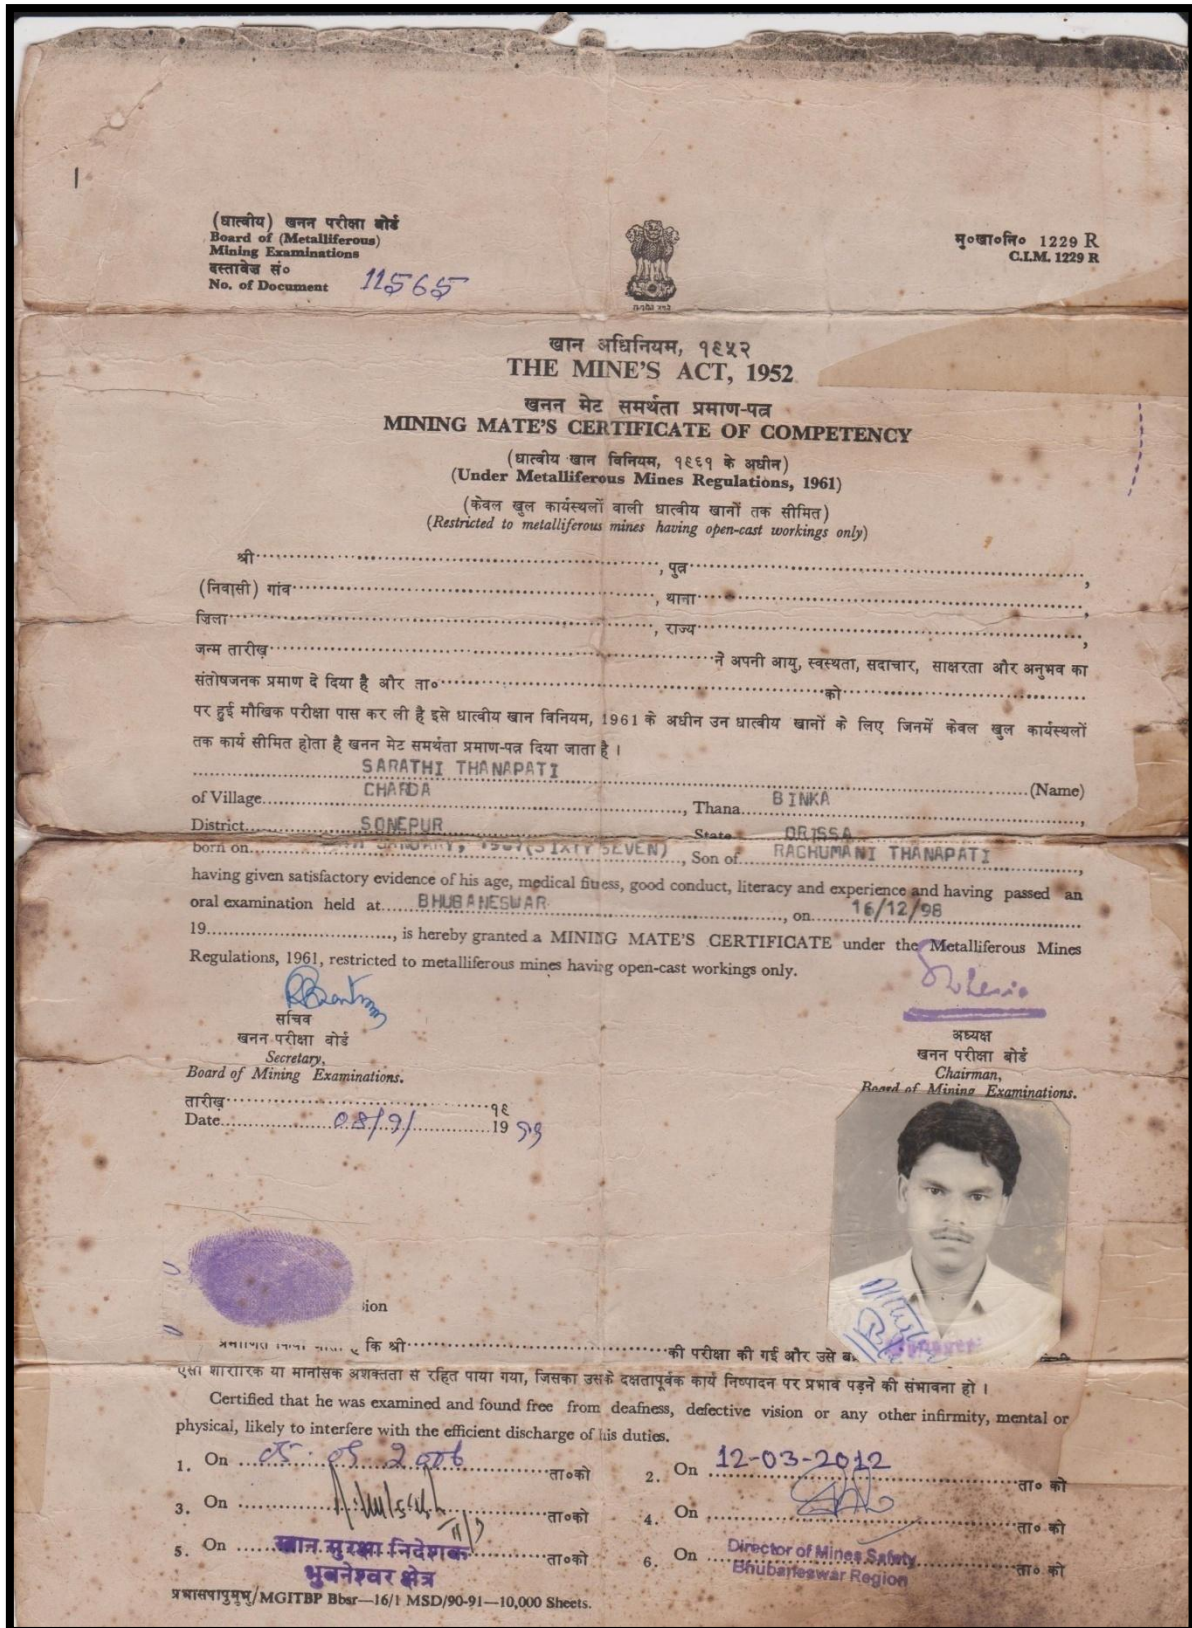 (धात्वीय) खनन परीक्षा बोर्ड
Board of (Metalliferous)
Mining Examinations
दस्तावेज सं०
No. of Document 11565
मु०खा०नि० 1229 R
C.I.M. 1229 R
खान अधिनियम, १९५२
THE MINE'S ACT, 1952
खनन मेट समर्थता प्रमाण-पत्र
MINING MATE'S CERTIFICATE OF COMPETENCY
(धात्वीय खान विनियम, १९६१ के अधीन)
(Under Metalliferous Mines Regulations, 1961)
(केवल खुल कार्यस्थलों वाली धात्वीय खानों तक सीमित)
(Restricted to metalliferous mines having open-cast workings only)
श्री...................., पुत्र....................,
(निवासी) गांव...................., थाना....................,
जिला...................., राज्य....................,
जन्म तारीख....................ने अपनी आयु, स्वस्थता, सदाचार, साक्षरता और अनुभव का
संतोषजनक प्रमाण दे दिया है और ता०....................को....................
पर हुई मौखिक परीक्षा पास कर ली है इसे धात्वीय खान विनियम, 1961 के अधीन उन धात्वीय खानों के लिए जिनमें केवल खुल कार्यस्थलों
तक कार्य सीमित होता है खनन मेट समर्थता प्रमाण-पत्र दिया जाता है ।
SARATHI THANAPATI (Name)
of Village CHARDA, Thana BINKA,
District SONEPUR State ORISSA
born on JANUARY, 1967(SIXTY SEVEN), Son of RACHUMANI THANAPATI,
having given satisfactory evidence of his age, medical fitness, good conduct, literacy and experience and having passed an
oral examination held at BHUBANESWAR, on 16/12/98
19...................., is hereby granted a MINING MATE'S CERTIFICATE under the Metalliferous Mines
Regulations, 1961, restricted to metalliferous mines having open-cast workings only.
सचिव
खनन परीक्षा बोर्ड
Secretary,
Board of Mining Examinations.
अध्यक्ष
खनन परीक्षा बोर्ड
Chairman,
Board of Mining Examinations.
तारीख....................१९
Date 19
ion
कि श्री....................की परीक्षा की गई और उसे
ऐसी शारीरिक या मानसिक अशक्तता से रहित पाया गया, जिसका उसके दक्षतापूर्वक कार्य निष्पादन पर प्रभाव पड़ने की संभावना हो ।
Certified that he was examined and found free from deafness, defective vision or any other infirmity, mental or
physical, likely to interfere with the efficient discharge of his duties.
1. On ....................ता०को
2. On 12-03-2012 ता० को
3. On ....................ता०को
4. On ....................ता० को
5. On ....................ता०को
6. On ....................ता० को
खान सुरक्षा निदेशक
भुबनेश्वर क्षेत्र
Director of Mines Safety
Bhubaneswar Region
MGITBP Bbsr—16/1 MSD/90-91—10,000 Sheets.